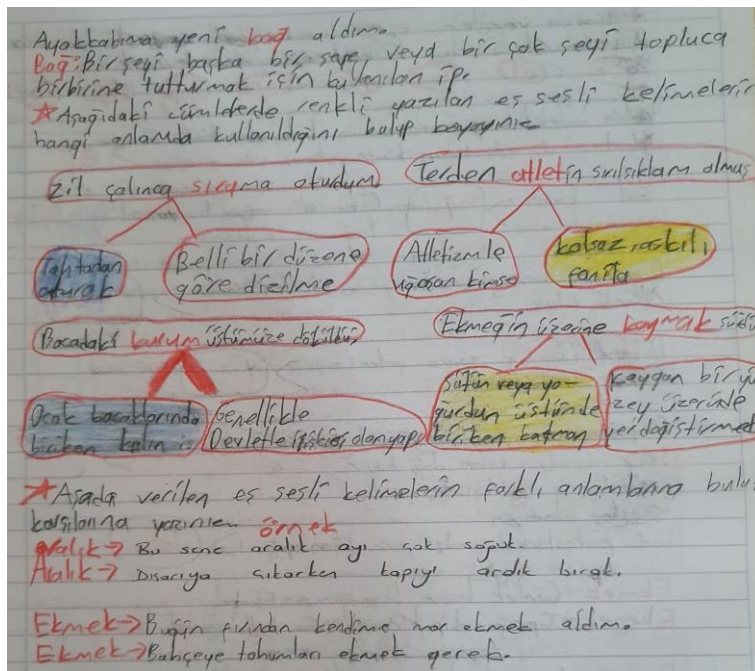 Ayakkabıma yeni bağ aldım.
Bağ: Bir şeyi başka bir şeye, veya bir çok şeyi topluca
birbirine tutturmak için kullanılan ip.
★ Aşağıdaki cümlelerde renkli yazılan eş sesli kelimelerin
hangi anlamda kullanıldığını bulup boyayınız
Zil çalınca sırama oturdum
Terden atletin sırılsıklam olmuş
Tahtadan oturak
Belli bir düzene
göre dizilme
Atletizmle
uğraşan kimse
kolsuz, askılı
fanila
Bacadaki kurum üstümüze döküldü
Ekmeğin üzerine kaymak sürdü
Ocak bacaklarında
biriken kalın is
Genellikle
Devletle ilişkisi olan yapı
Sütün veya yo-
ğurdun üstünde
biriken katman
Kaygan bir yü
zey üzerinde
yer değiştirmek
★ Aşada verilen eş sesli kelimelerin farklı anlamlarını bulu
karşılarına yazınız. örnek
Aralık → Bu sene aralık ayı çok soğut.
Aralık → Dışarıya çıkarken kapıyı aralık bırak.
Ekmek → Bugün fırından kendime mor ekmek aldım.
Ekmek → Bahçeye tohumları ekmek gerek.